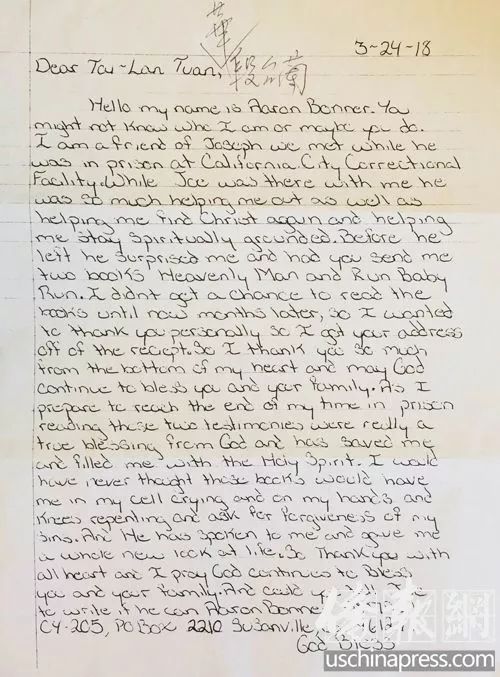 華
段台蘭
3-24-18
Dear Tai-Lan Tuan,
Hello my name is Aaron Bonner. You
might not know who I am or maybe you do.
I am a friend of Joseph we met while he
was in prison at California City Correctional
Facility. While Joe was there with me he
was so much helping me out as well as
helping me find Christ again and helping
me stay spiritually grounded. Before he
left he surprised me and had you send me
two books Heavenly Man and Run Baby
Run. I didn't get a chance to read the
books until now months later, so I wanted
to thank you personally so I got your address
off of the reciept. So I thank you so much
from the bottom of my heart and may God
continue to bless you and your family. As I
prepare to reach the end of my time in prison
reading these two testimonies were really a
true blessing from God and has saved me
and filled me with the Holy Spirit. I would
have never thought those books would have
me in my cell crying and on my hands and
knees repenting and ask for forgiveness of my
sins. And He has spoken to me and gave me
a whole new look at life. So Thank you with
all heart and I pray God continues to Bless
you and your family. And could you
to write if he can Aaron Bonner
C4-205, PO Box 2210 Susanville,
God Bless
僑報網
uschinapress.com